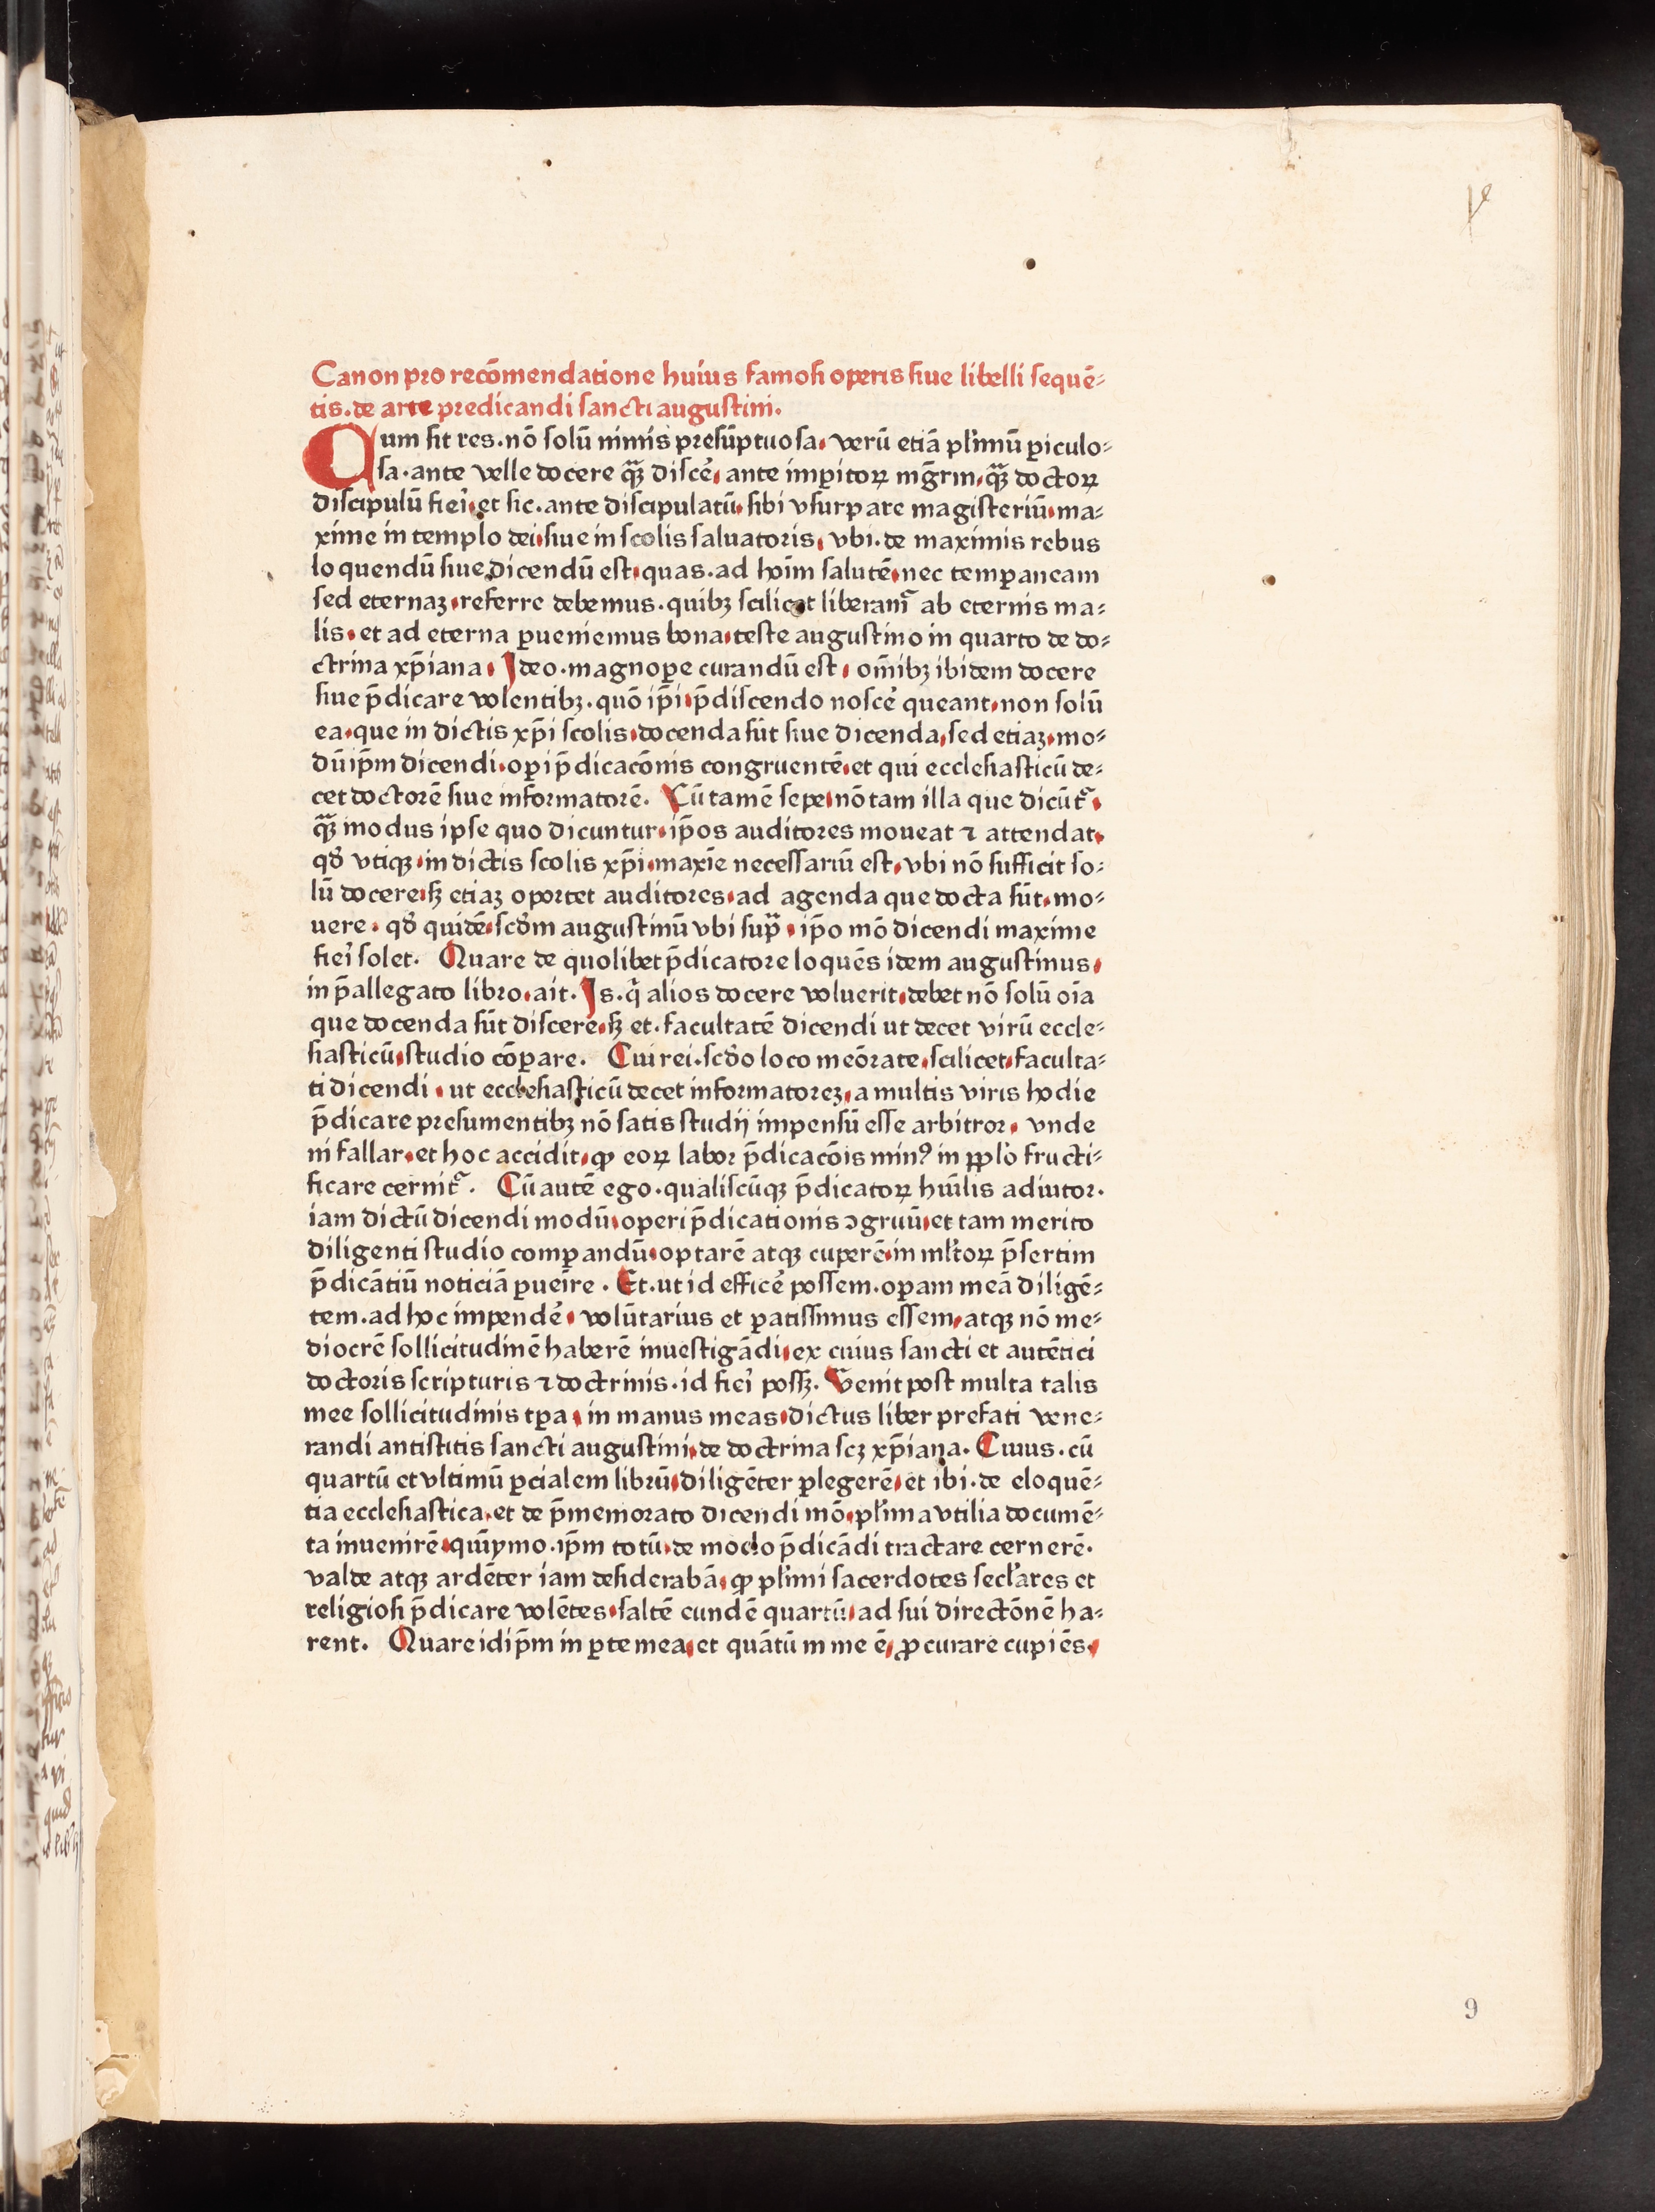 Canon pro recōmendatione huius famoſi operis ſiue libelli ſequē⸗
tis.de arte predicandi ſancti auguſtini.
Cum ſit res.nō ſolū nimis preſūptuoſa. verū etiā pl'imū ꝑiculo⸗
ſa.ante velle docere qꝫ̄ diſce᷑. ante imꝑitoꝝ mḡrm.qꝫ̄ doctoꝝ
diſcipulū fieri᷑.et ſic.ante diſcipulatū.ſibi vſurpare magiſteriū.ma⸗
xime in templo dei.ſiue in ſcolis ſaluatoris. vbi.de maximis rebus
loquendū ſiue dicendū eſt.quas.ad hoīm ſalutē.nec temꝑaneam
ſed eternaꝫ.referre debemus.quibꝫ ſcilicet liberam᷑ ab eternis ma⸗
lis.et ad eterna ꝑueniemus bona.teſte auguſtino in quarto de do⸗
ctrina xp̄iana. Ideo.magnoꝑe curandū eſt. om̄ibꝫ ibidem docere
ſiue p̄dicare volentibꝫ.quō ip̄i.p̄diſcendo noſce᷑ queant.non ſolū
ea.que in dictis xp̄i ſcolis.docenda ſūt ſiue dicenda.ſed etiaꝫ.mo⸗
dū ip̄m dicendi.oꝑi p̄dicacōnis congruentē.et qui eccleſiaſticū de⸗
cet doctorē ſiue informatorē. Cū tamē ſepe.nō tam illa que dicūt᷑.
qꝫ̄ modus ipſe quo dicuntur.ip̄os auditores moueat ⁊ attendat.
qđ vtiqꝫ.in dictis ſcolis xp̄i.maxīe neceſſariū eſt.vbi nō ſufficit ſo⸗
lū docere.ſꝫ etiaꝫ oportet auditores.ad agenda que docta ſūt.mo⸗
uere. qđ quidē.ſcđm auguſtinū vbi ſup̄.ip̄o mō dicendi maxime
fieri᷑ ſolet. Quare de quolibet p̄dicatore loquēs idem auguſtinus.
in p̄allegato libro.ait. Is.q̇ alios docere voluerit.debet nō ſolū oīa
que docenda ſūt diſcere.ſꝫ et.facultatē dicendi ut decet virū eccle⸗
ſiaſticū.ſtudio cōꝑare. Cui rei.ſcđo loco meōrate.ſcilicet.faculta⸗
ti dicendi. ut eccleſiaſticū decet informatoreꝫ.a multis viris hodie
p̄dicare preſumentibꝫ nō ſatis ſtudij impenſū eſſe arbitror. vnde
ni fallar.et hoc accidit.ꝙ eoꝝ labor p̄dicacōis minꝰ in pp̄lo fructi⸗
ficare cernit᷑. Cū autē ego.qualiſcūqꝫ p̄dicatoꝝ hūilis adiutor.
iam dictū dicendi modū.operi p̄dicationis ↄgruū.et tam merito
diligenti ſtudio comꝑandū.optarē atqꝫ cuperē.in ml'toꝝ p̄ſertim
p̄dicātiū noticiā ꝑueīre. Et.ut id effice᷑ poſſem.oꝑam meā diligē⸗
tem.ad hoc impende᷑. volūtarius et ꝑatiſſimus eſſem.atqꝫ nō me⸗
diocrē ſollicitudinē haberē inueſtigādi.ex cuius ſancti et autētici
doctoris ſcripturis ⁊ doctrinis.id fieri᷑ poſſꝫ. Venit poſt multa talis
mee ſollicitudinis tꝑa.in manus meas.dictus liber prefati vene⸗
randi antiſtitis ſancti auguſtini.de doctrina ſcꝫ xp̄iana. Cuius.cū
quartū et vltimū ꝑcialem librū.diligēter ꝑlegerē.et ibi.de eloquē⸗
tia eccleſiaſtica.et de p̄memorato dicendi mō.pl'ima vtilia documē⸗
ta inuenirē.quīymo.ip̄m totū.de modo p̄dicādi tractare cernerē.
valde atqꝫ ardēter iam deſiderabā.ꝙ pl'imi ſacerdotes ſecl'ares et
religioſi p̄dicare volētes.ſaltē eundē quartū.ad ſui directōnē ha⸗
rent. Quare idip̄m in ꝑte mea.et quātū in me ē.ꝓcurare cupiēs.
9